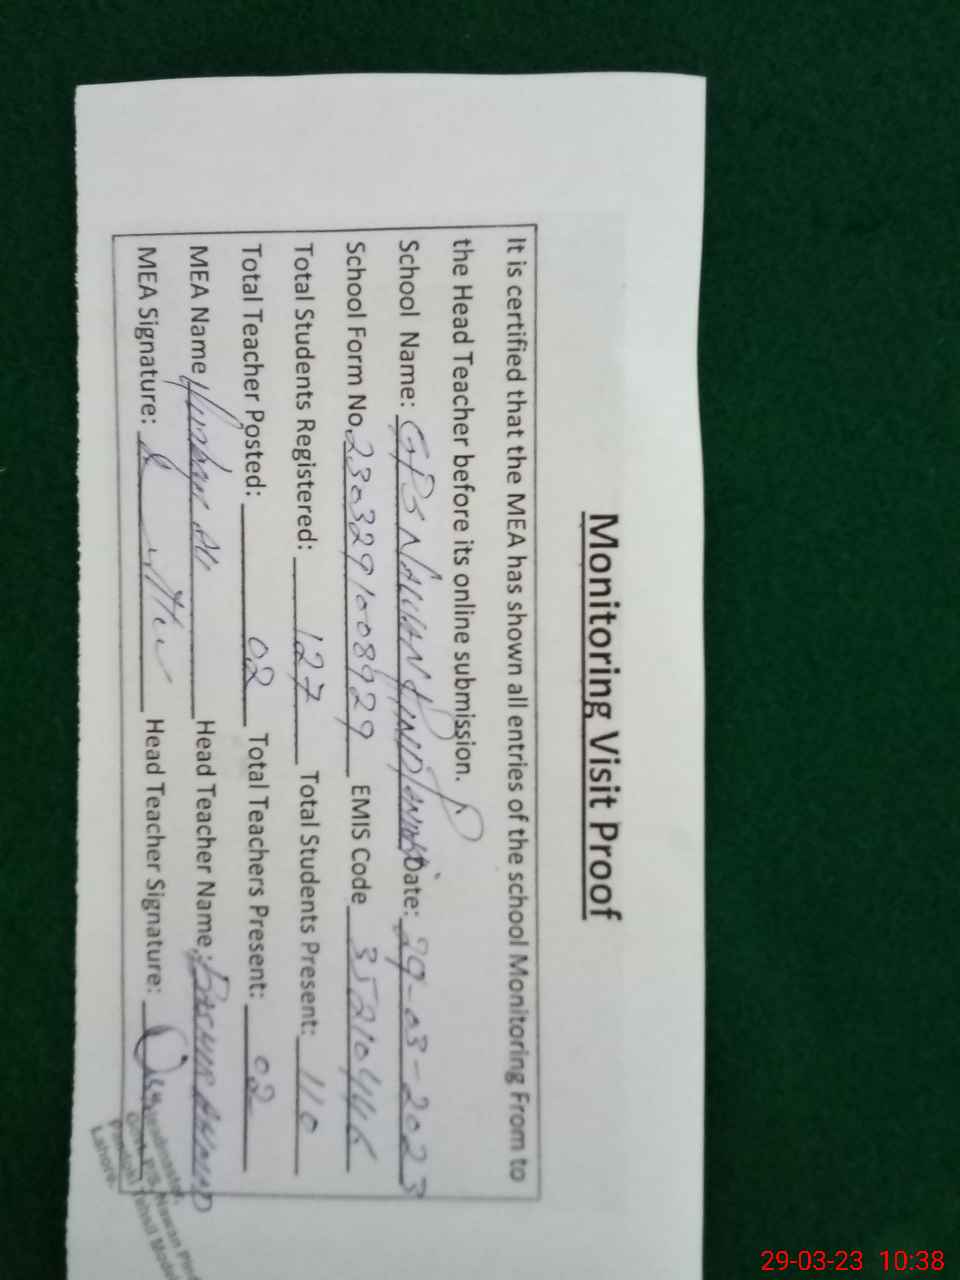 Monitoring Visit Proof
It is certified that the MEA has shown all entries of the school Monitoring From to
the Head Teacher before its online submission.
School Name: GPS NAWAN PIND Date: 29-03-2023
School Form No. 2303291008929 EMIS Code 35210446
Total Students Registered: 127 Total Students Present: 110
Total Teacher Posted: 02 Total Teachers Present: 02
MEA Name Ali Head Teacher Name: BASHIR AHMAD
MEA Signature: Head Teacher Signature:
Headmaster
Govt. P/S, Nawan Pind
Tehsil Model
Lahore.
29-03-23 10:38